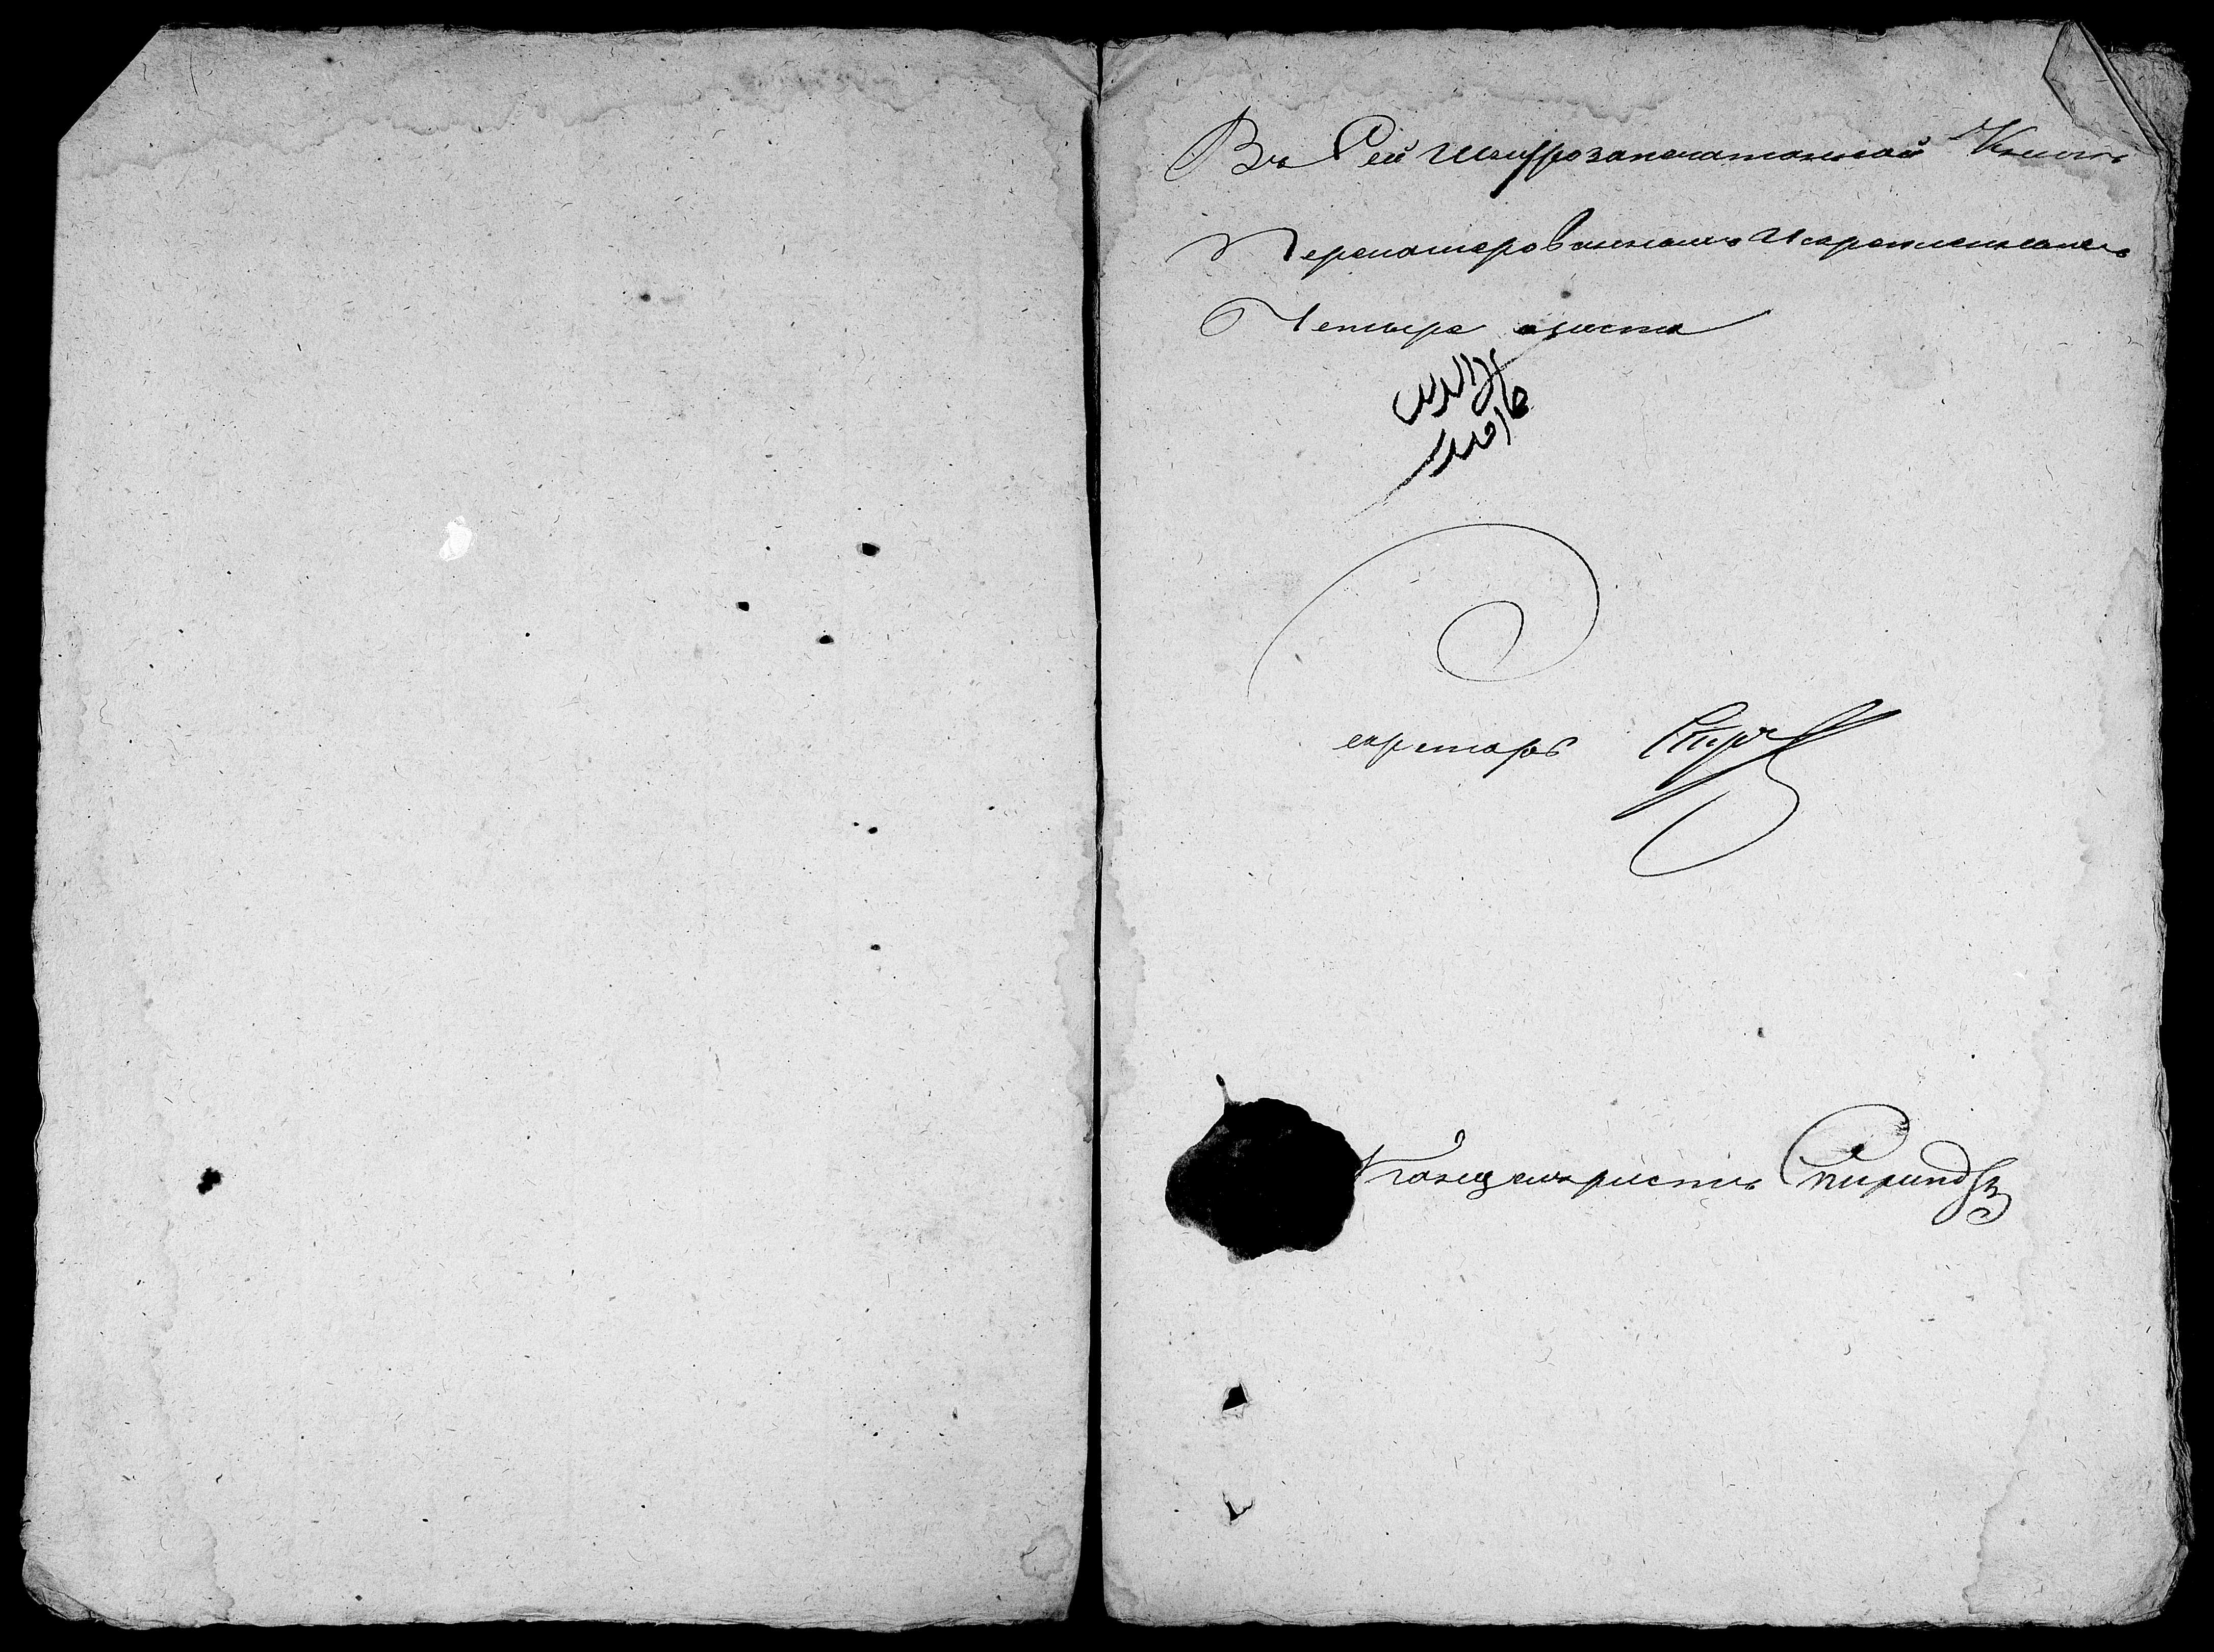 Въ Сей Шнурозапечатанной Книги
Переномерованныхъ Искрепленныхъ
Четыре листа
екретарь
Канцеляристъ Спиридо